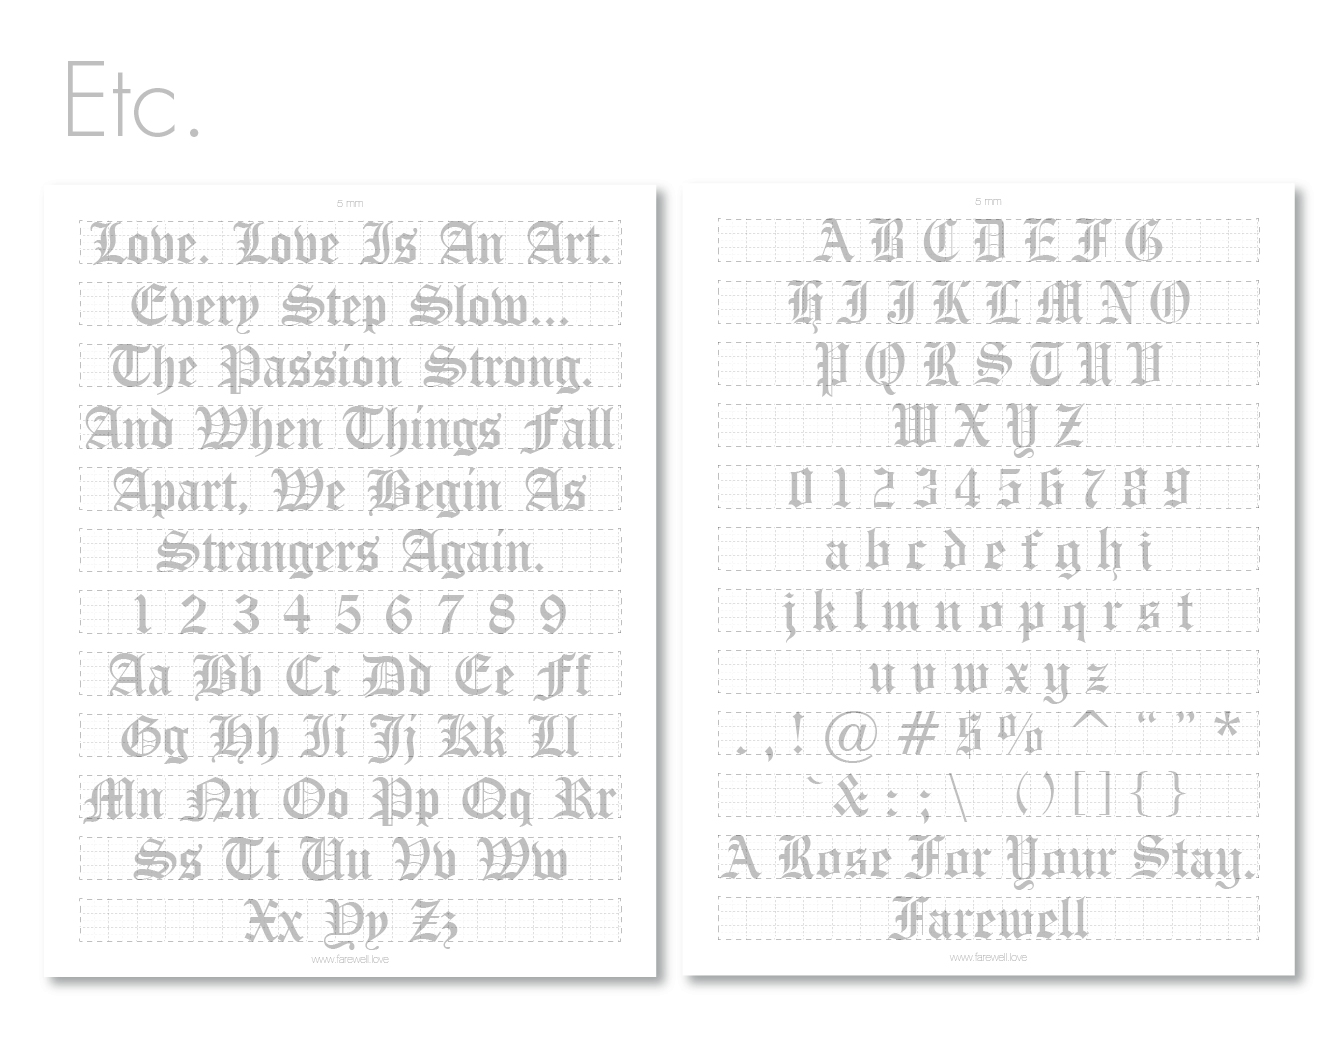 Etc.
5 mm
Love. Love Is An Art.
Every Step Slow...
The Passion Strong.
And When Things Fall
Apart, We Begin As
Strangers Again.
1 2 3 4 5 6 7 8 9
Aa Bb Cc Dd Ee Ff
Gg Hh Ii Jj Kk Ll
Mn Nn Oo Pp Qq Rr
Ss Tt Uu Vv Ww
Xx Yy Zz
www.farewell.love
5 mm
A B C D E F G
H I J K L M N O
P Q R S T U V
W X Y Z
0 1 2 3 4 5 6 7 8 9
a b c d e f g h i
j k l m n o p q r s t
u v w x y z
. , ! @ # $ % ^ “ ” *
` & : ; \ ( ) [ ] { }
A Rose For Your Stay.
Farewell
www.farewell.love